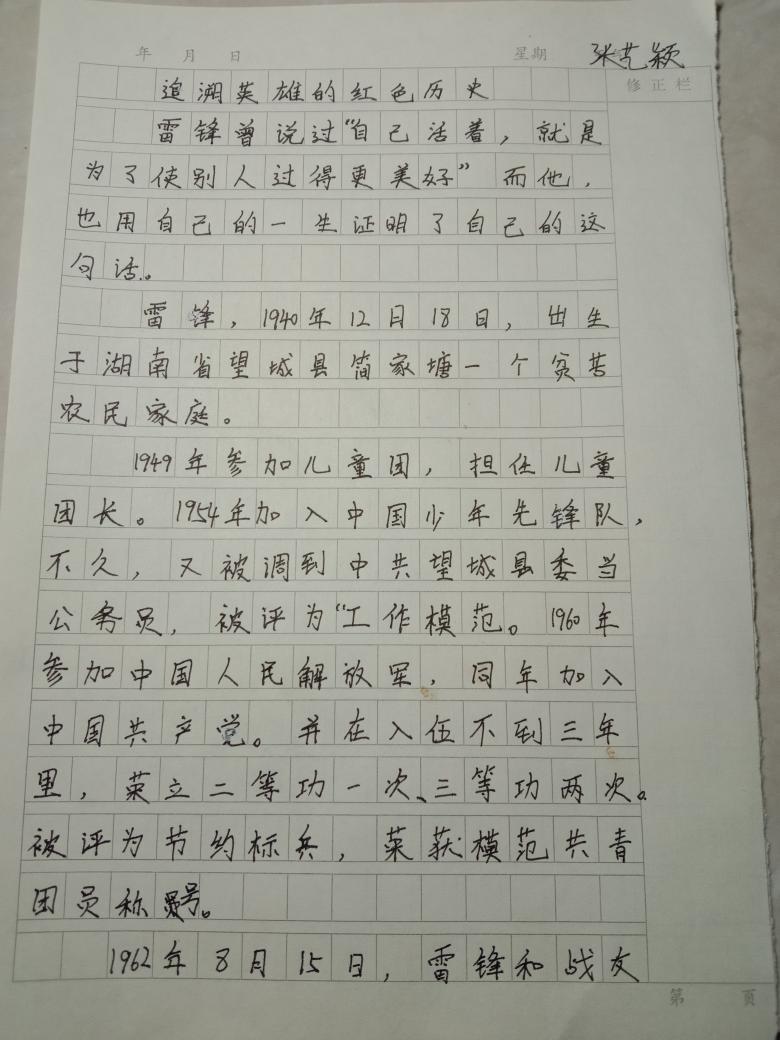 年 月 日 星期 张艺颖
修正栏
追溯英雄的红色历史
雷锋曾说过“自己活着，就是
为了使别人过得更美好”而他，
也用自己的一生证明了自己的这
句话。
雷锋，1940年12月18日，出生
于湖南省望城县简家塘一个贫苦
农民家庭。
1949年参加儿童团，担任儿童
团长。1954年加入中国少年先锋队，
不久，又被调到中共望城县委当
公务员，被评为“工作模范。1960年
参加中国人民解放军，同年加入
中国共产党。并在入伍不到三年
里，荣立二等功一次、三等功两次。
被评为节约标兵，荣获模范共青
团员称号。
1962年8月15日，雷锋和战友
第 页